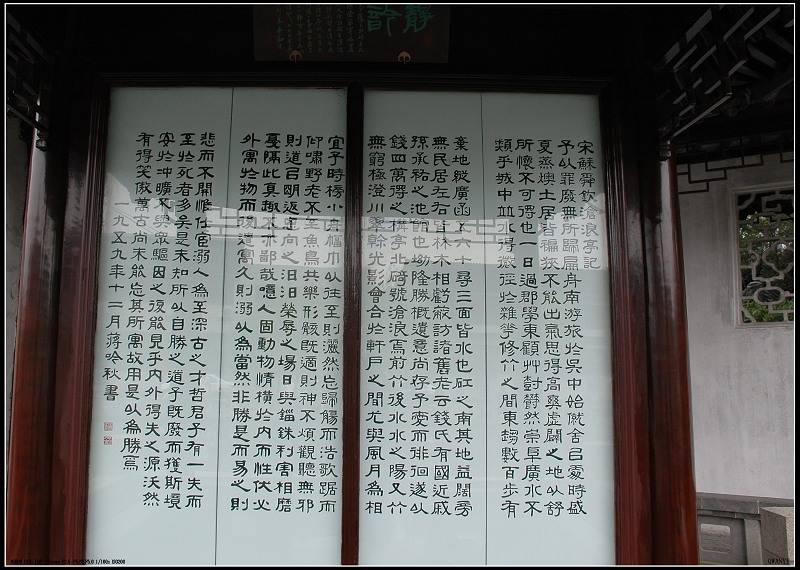 宋蘇舜欽滄浪亭記
予以罪廢無所歸扁舟南游旅於吳中始僦舍以處時盛
夏蒸燠土居皆褊狹不能出氣思得高爽虛闢之地以舒
所懷不可得也一日過郡學東顧草樹鬱然崇阜廣水不
類乎城中並水得微徑於雜華修竹之間東趨數百步有
棄地縱廣函五六十尋三面皆水也杠之南其地益闊旁
無民居左右皆林木相虧蔽訪諸舊老云錢氏有國近戚
孫承祐之池館也坳隆勝概遺意尚存予愛而徘徊遂以
錢四萬得之構亭北碕號滄浪焉前竹後水水之陽又竹
無窮極澄川翠幹光影會合於軒戶之間尤與風月為相
宜予時榜小舟幅巾以往至則灑然忘歸觴而浩歌踞而
仰嘯野老不至魚鳥共樂形骸既適則神不煩觀聽無邪
則道以明返思向之汩汩榮辱之場日與錙銖利害相磨
戛隔此真趣不亦鄙哉噫人固動物情橫於內而性伏必
外寓於物而後遣寓久則溺以為當然非勝是而易之則
悲而不開惟仕宦溺人為至深古之才哲君子有一失而
至於死者多矣是未知所以自勝之道予既廢而獲斯境
安於沖曠不與眾驅因之復能見乎內外得失之源沃然
有得笑傲萬古尚未能忘其所寓故用是以為勝焉
一九五九年十二月蔣吟秋書
1/100s ISO200